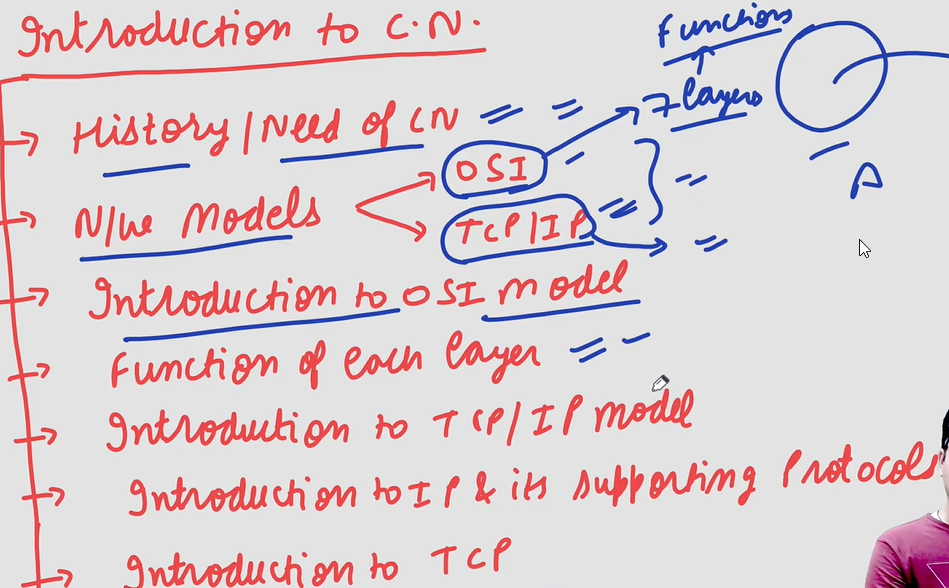 Introduction to C.N.
Functions
7 layers
History/Need of CN
OSI
N/w Models
TCP/IP
A
Introduction to OSI model
Function of each layer
Introduction to TCP/IP model
Introduction to IP & its supporting Protocols
Introduction to TCP